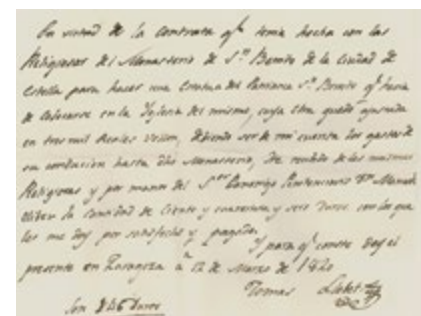 En virtud de la Contrata qe. tenia hecha con las
Religiosas del Monasterio de Sn. Benito de la Ciudad de
Estella para hacer una Estatua del Patriarca Sn. Benito qe. havia
de colocarse en la Iglesia del mismo, cuya Obra quedó ajustada
en tres mil Reales Vellon, debiendo ser de mi cuenta los gastos de
su conducion hasta dho Monasterio, he recibido de las mismas
Religiosas y por manos del Sor. Canonigo Penitenciario Dn. Manuel
la Cantidad de Ciento y cuarenta y seis Duros con los que
me doy por satisfecho y pagado.
Y para qe. conste doy el
presente en Zaragoza a 12 de Marzo de 1820
Tomas Llovet
Son 146 Duros